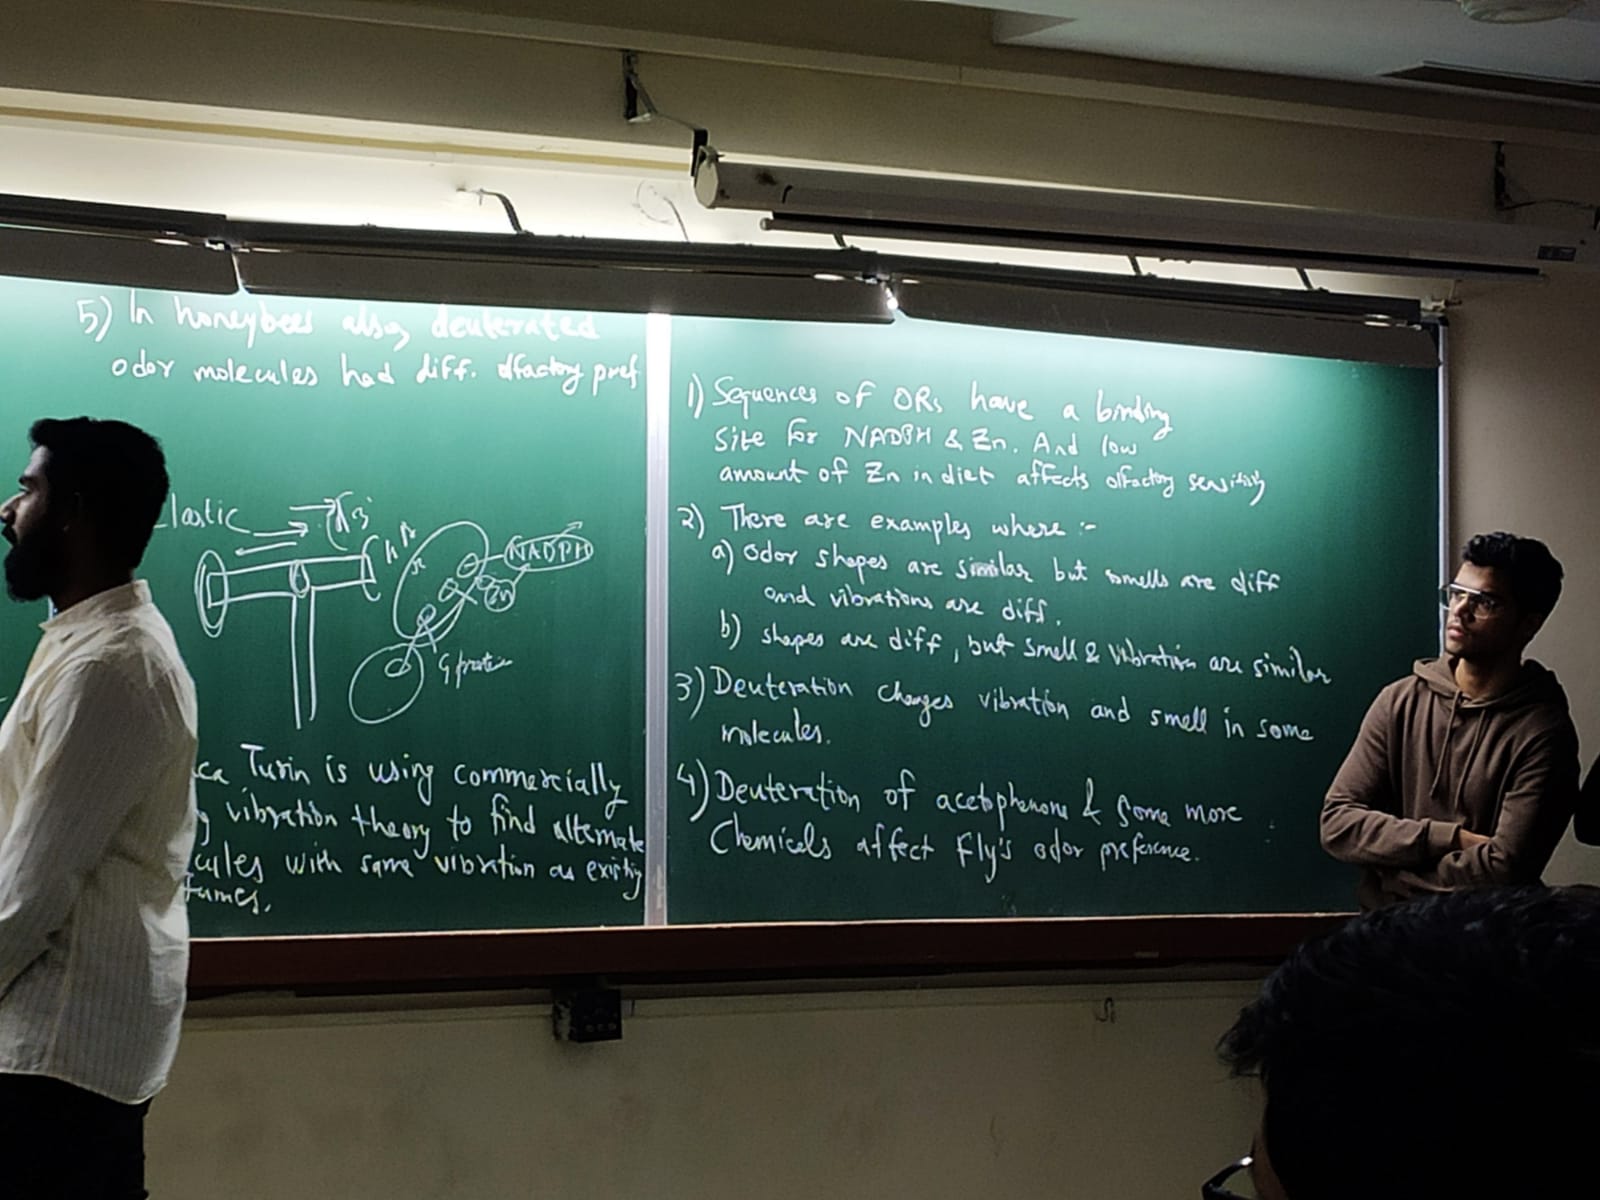 5) In honeybees also, deuterated
odor molecules had diff. olfactory pref
lastic
NADPH
Zn
G protein
ca Turin is using commercially
g vibration theory to find alternate
cules with same vibration as existing
fumes.
1) Sequences of ORs have a binding
site for NADPH & Zn. And low
amount of Zn in diet affects olfactory sensitivity
2) There are examples where :-
a) odor shapes are similar but smells are diff
and vibrations are diff.
b) shapes are diff, but smell & vibration are similar
3) Deuteration changes vibration and smell in some
molecules.
4) Deuteration of acetophenone & some more
Chemicals affect Fly's odor preference.